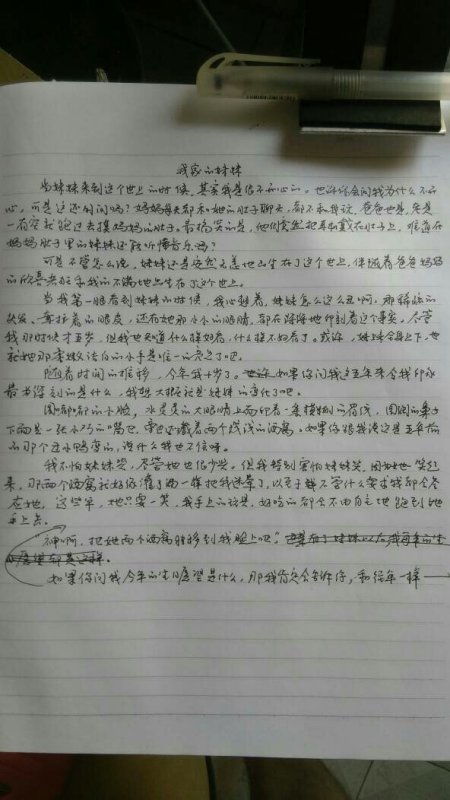 我家的妹妹
当妹妹来到这个世上的时候，其实我是很不开心的。也许你会问我为什么不开
心，可是这还用问吗？妈妈每天都和她的肚子聊天，都不和我说，爸爸也是，老是
一有空就跑过去摸妈妈的肚子。最搞笑的是，他们竟然把耳机戴在肚子上，难道在
妈妈肚子里的妹妹还能听懂音乐吗？
可是不管怎么说，妹妹还是安然无恙地出生在了这个世上，伴随着爸爸妈妈
的欣喜若狂和我的不满地出生在了这个世上。
当我第一眼看到妹妹的时候，我心想着，妹妹怎么这么丑啊，那稀疏的
头发、耷拉着的眼皮，还有她那小小的眼睛，都在深深地印刻着这个事实。尽管
我那时候才五岁，但我也知道什么样好看，什么样不好看了。或许，妹妹全身上下，也
就她那柔嫩洁白的小手是唯一的亮点了吧。
随着时间的推移，今年我十岁了。如果你问我这五年来令我印象
最为深刻的是什么，我想大概就是妹妹的变化了吧。
圆嘟嘟的小脸，水灵灵的大眼睛上面印着一条精细的眉线，圆圆的鼻子
下面是一张小巧的嘴巴，旁边还藏着两个浅浅的酒窝。如果你跟我说这是五年前
的那个丑小鸭变的，说什么我也不信呀。
我不怕妹妹哭，尽管她也很少哭。但我特别害怕妹妹笑，因为她一笑起
来，那两个酒窝就好像灌了酒一样把我迷晕了，以至于无论什么要求我都会答
应她，这些年，她只要一笑，我手上的玩具、好吃的都会不由自主地跑到她
手上去。
神啊，把她两个酒窝转移到我脸上吧！
如果你问我今年的生日愿望是什么，那我肯定会告诉你，和往年一样——